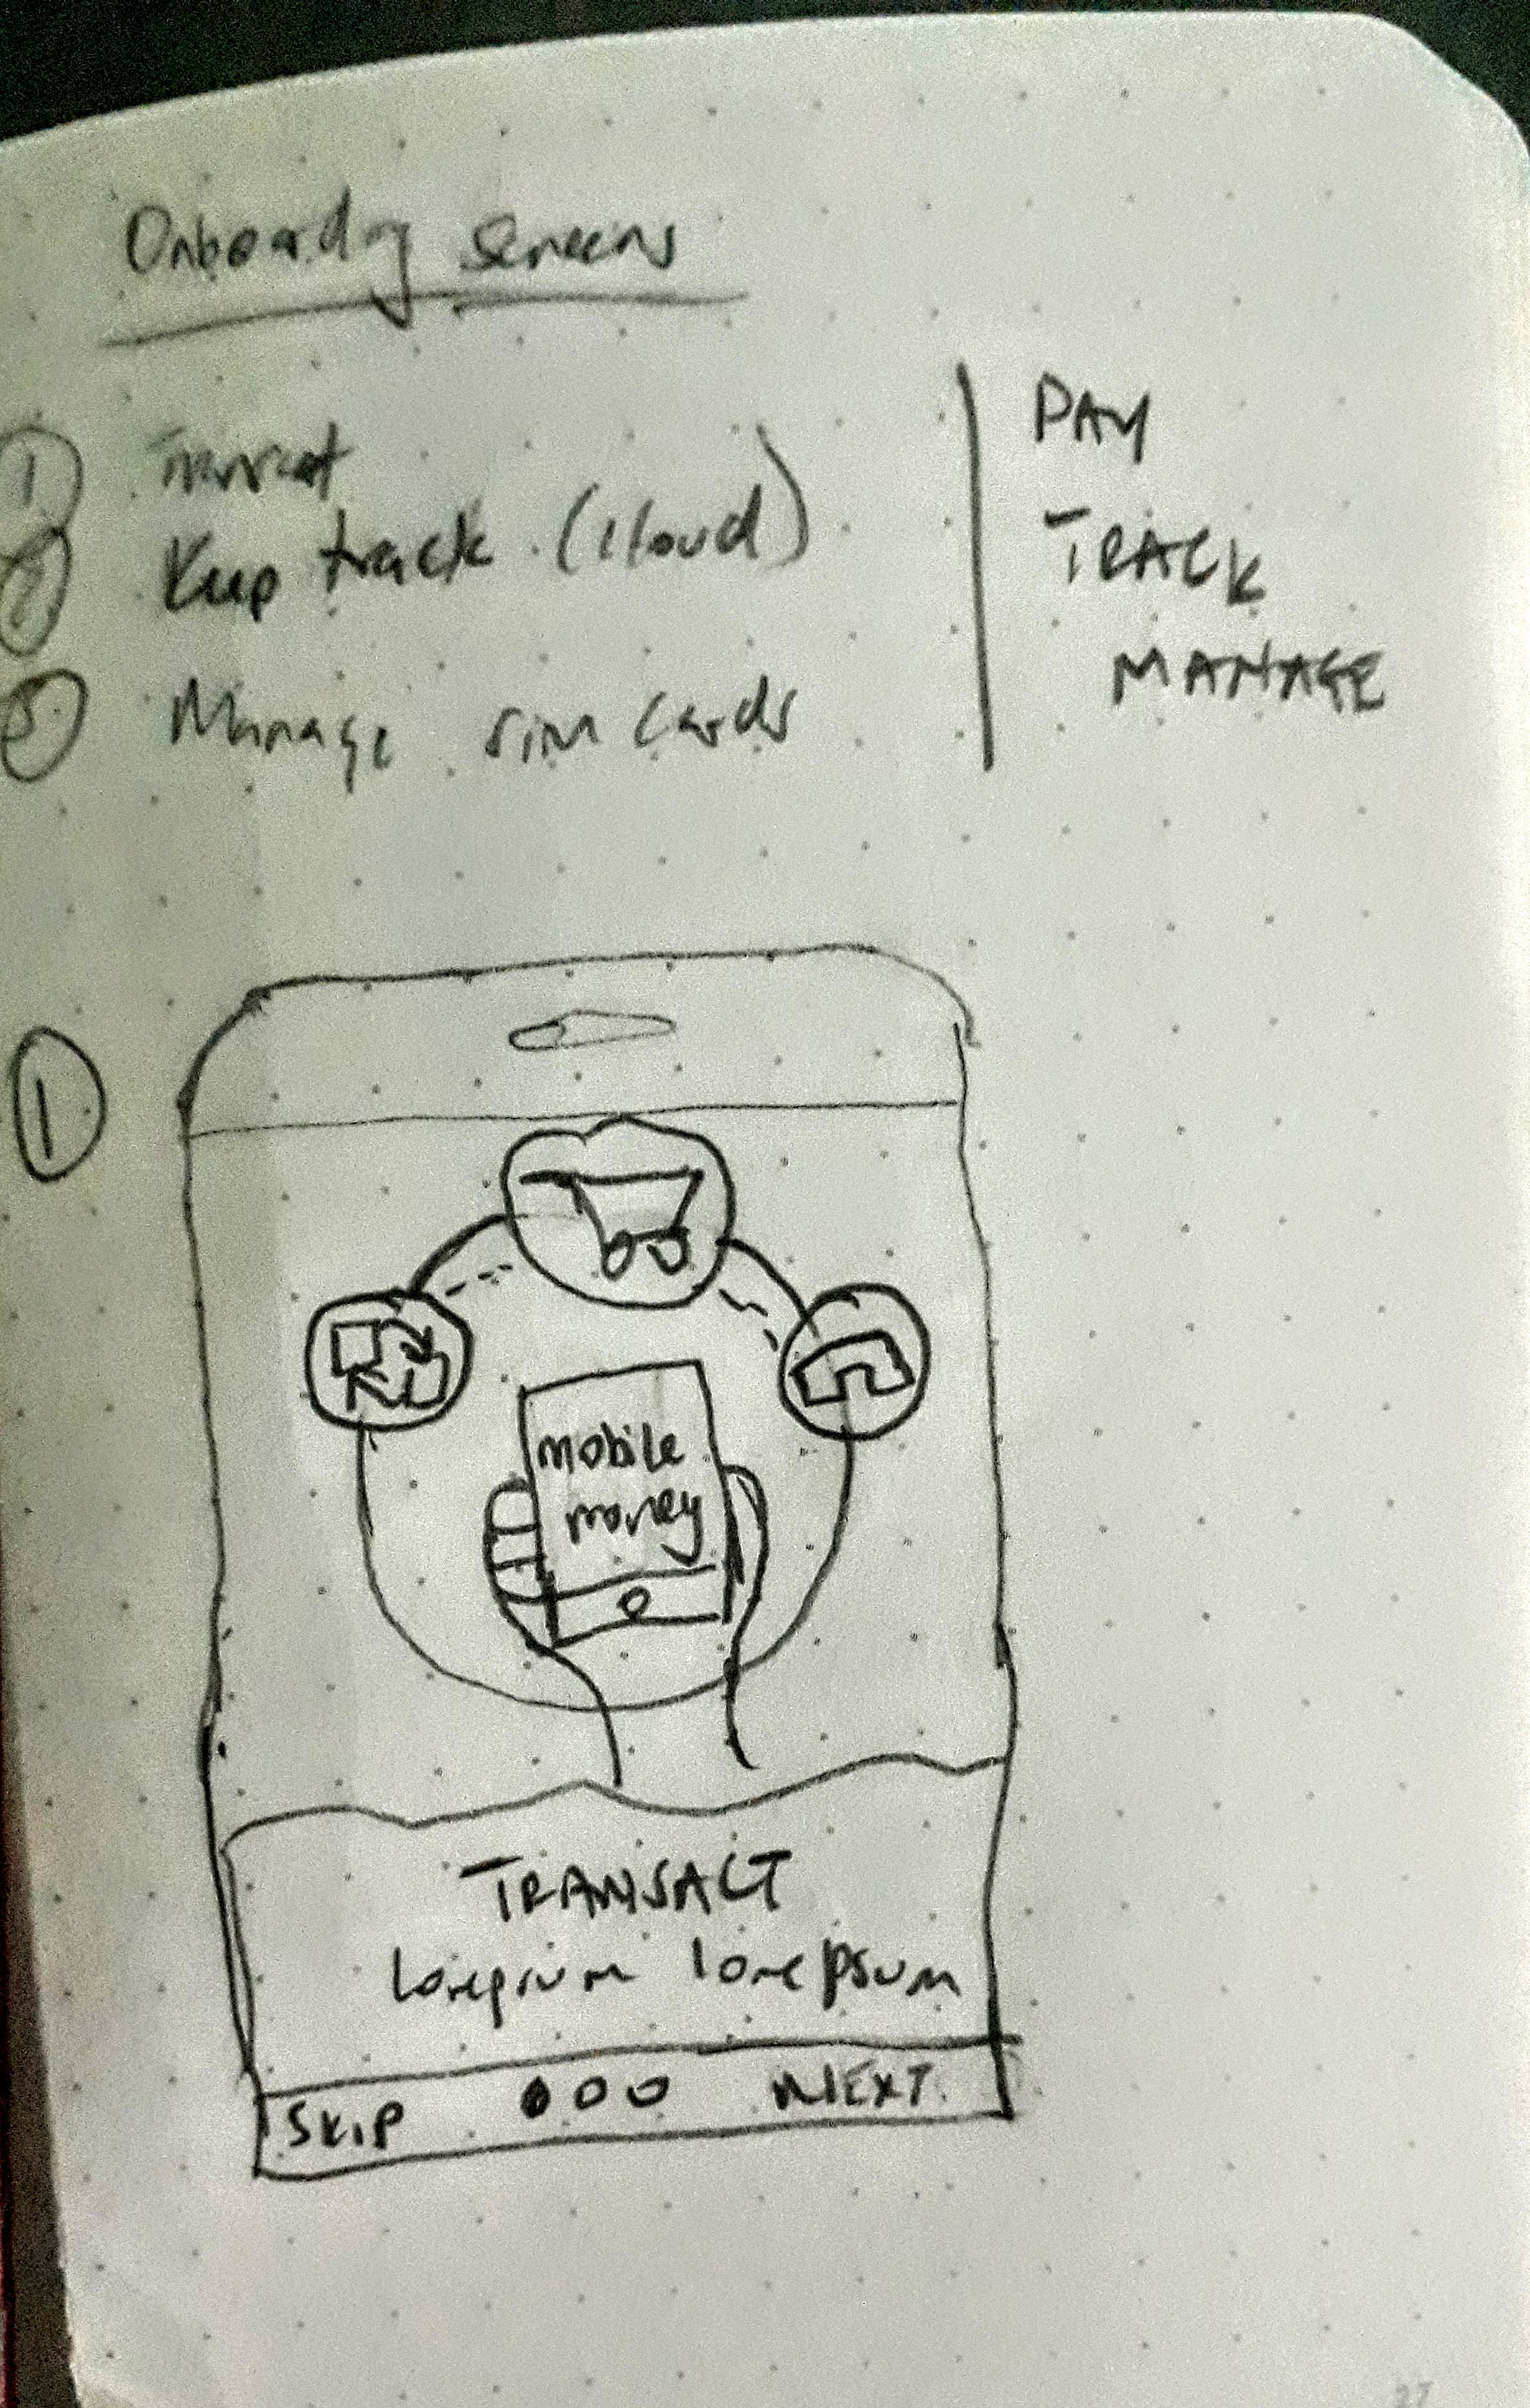 Onboarding screens
① Transact
② Keep track (cloud)
③ Manage sim cards
PAY
TRACK
MANAGE
①
mobile
money
TRANSACT
Loremipsum lorepsum
SKIP NEXT
27